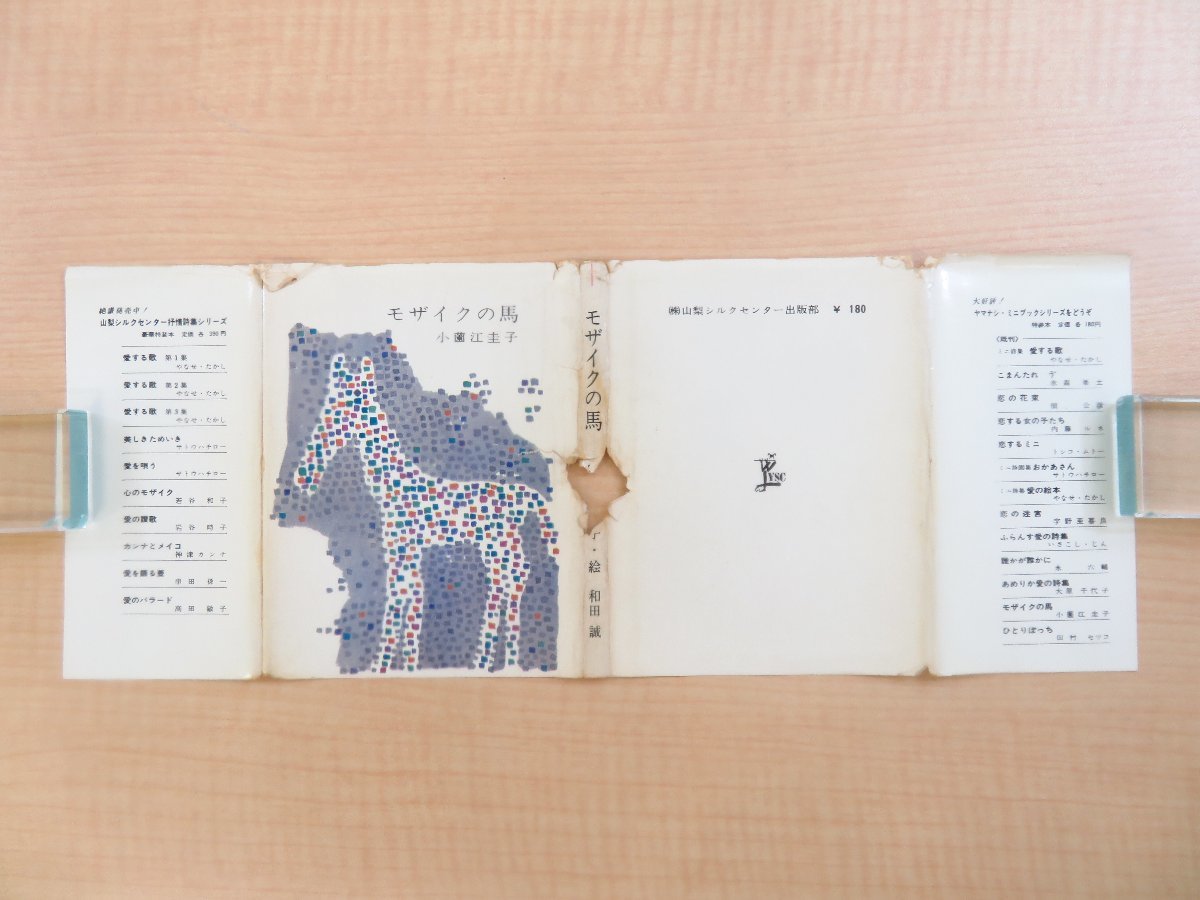 絶讃発売中！
山梨シルクセンター抒情詩集シリーズ
豪華特装本 定価 各 390円
愛する歌 第1集
やなせ・たかし
愛する歌 第2集
やなせ・たかし
愛する歌 第3集
やなせ・たかし
美しきためいき
サトウハチロー
愛を唄う
サトウハチロー
心のモザイク
若谷 和子
愛の讃歌
岩谷 時子
カンナとメイコ
神津カンナ
愛を語る姜
愛のバラード
高田 敏子
モザイクの馬
小薗江圭子
モザイクの馬
・絵 和田 誠
㈱山梨シルクセンター出版部 ￥ 180
YSC
大好評！
ヤマナシ・ミニブックシリーズをどうぞ
特装本 定価 各 180円
〈既刊〉
ミニ詩集 愛する歌
やなせ・たかし
こまんたれ
恋の花束
恋する女の子たち
内藤 ルネ
恋するミニ
トシコ・ムトー
ミニ詩画集 おかあさん
サトウハチロー
ミニ詩集 愛の絵本
やなせ・たかし
恋の迷宮
宇野亜喜良
ふらんす愛の詩集
いさこし・とん
誰かが誰かに
永 六輔
あめりか愛の詩集
大原 千代子
モザイクの馬
小薗江圭子
ひとりぼっち
田村 セツコ